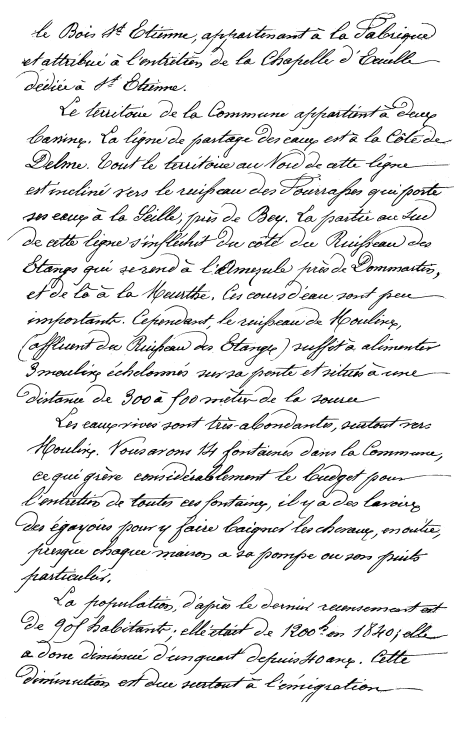 le Bois St Etienne, appartenant à la Fabrique
et attribué à l'entretien de la Chapelle d'Ecuelle
dédiée à St Etienne.
Le territoire de la Commune appartient à deux
bassins. La ligne de partage des eaux est à la Côte de
Delme. Tout le territoire au Nord de cette ligne
est incliné vers le ruisseau des Fourrasses qui porte
ses eaux à la Seille, près de Bey. La partie au Sud
de cette ligne s'infléchit du côté du Ruisseau des
Etangs qui se rend à l'Amezule près de Dommartin,
et de là à la Meurthe. Ces cours d'eau sont peu
importants. Cependant, le ruisseau de Moulins,
(affluent du Ruisseau des Etangs) suffit à alimenter
3 moulins échelonnés sur sa pente et situés à une
distance de 300 à 500 mètres de la source
Les eaux vives sont très-abondantes, surtout vers
Moulins. Nous avons 14 fontaines dans la Commune,
ce qui grève considérablement le budget pour
l'entretien de toutes ces fontaines, il y a des lavoirs
des égayoirs pour y faire baigner les chevaux, en outre,
presque chaque maison a sa pompe ou son puits
particulier.
La population, d'après le dernier recensement est
de 905 habitants; elle était de 1200 h en 1840; elle
a donc diminué d'un quart depuis 40 ans. Cette
diminution est due surtout à l'émigration